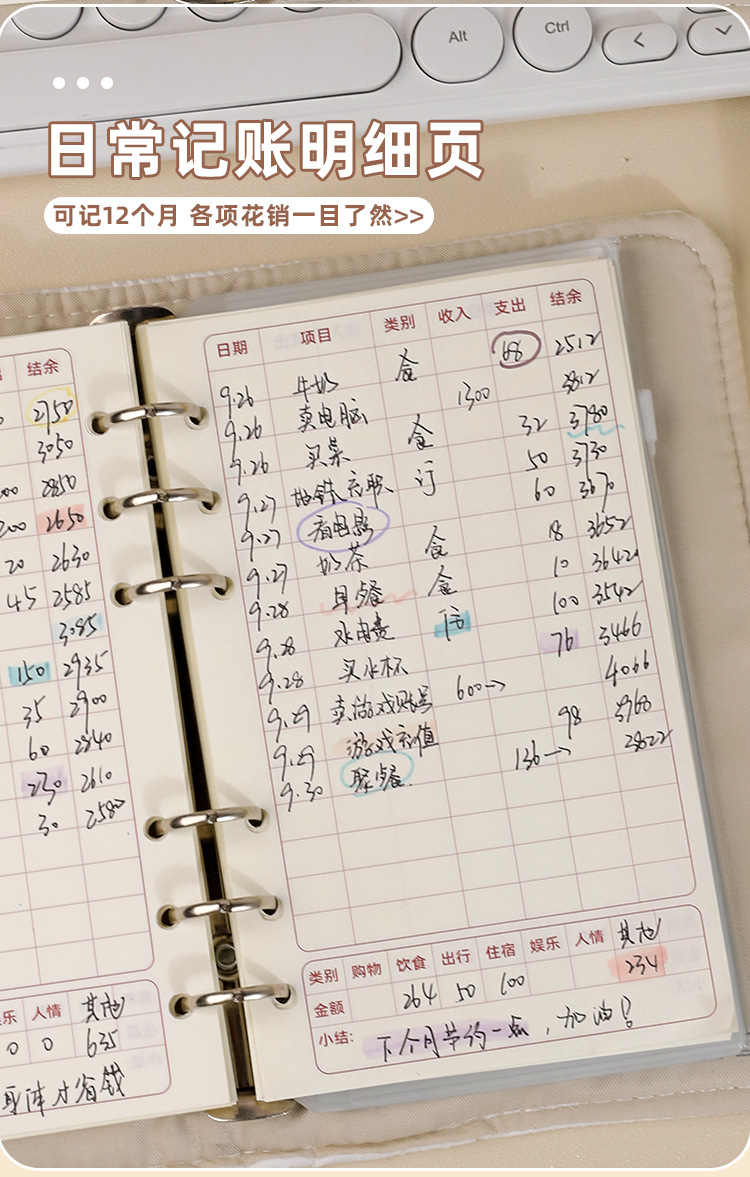 Alt
Ctrl
<
日常记账明细页
可记12个月 各项花销一目了然>>
结余
2750
3050
2850
200 2650
20 2630
45 2585
3085
150 2935
35 2900
60 2840
230 2610
30 2580
人情 其他
0 0 635
省钱
日期 项目 类别 收入 支出 结余
9.26 牛奶 食 68 2512
9.26 卖电脑 1300 3812
9.26 买菜 食 32 3780
9.27 地铁充职 行 50 3730
9.27 看电影 60 3670
9.27 奶茶 食 18 3652
9.28 早餐 食 10 3642
9.28 水电费 住 100 3542
9.28 买水杯 76 3466
9.29 卖游戏账号 600→ 4066
9.29 游戏充值 98 3968
9.30 聚餐. 136→ 2822
类别 购物 饮食 出行 住宿 娱乐 人情 其他
金额 264 50 100 234
小结: 下个月节约一点，加油！